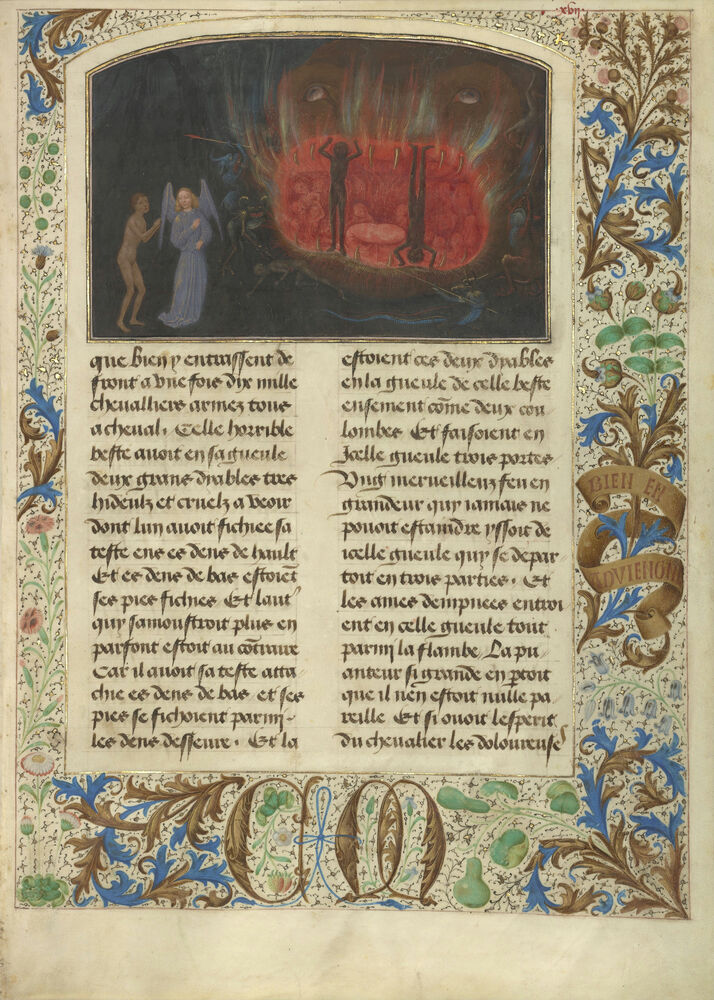 xvij
que bien y entrassent de
front a vne fois dix mille
chevalliers armez tous
a cheval. Celle horrible
beste auoit en sa gueule
deux grans dyables tres
hideulz et cruelz a veoir
dont lun auoit fichiee sa
teste ens es dens de hault
Et es dens de bas estoiēt
ses pies fichies Et laut'
quy samonstroit plus en
parfont estoit au cōtraire
Car il auoit sa teste atta
chie es dens de bas et ses
pies se fichoient parmy
les dens desseure. Et la
estoient ces deux dyables
en la gueule de celle beste
ensement cōme deux cou
lombes Et faisoient en
Jcelle gueule trois portes
Vng merveilleux feu en
grandeur quy iamais ne
pouoit estaindre yssoit de
icelle gueule quy se depar
toit en trois parties. Et
les ames dempnees entroi
ent en celle gueule tout
parmi la flambe. La pu
anteur si grande en
que il nen estoit nulle pa
reille Et si ouoit lesperit
du chevalier les doloureuse
BIEN EN
ADVIENGNE
C M